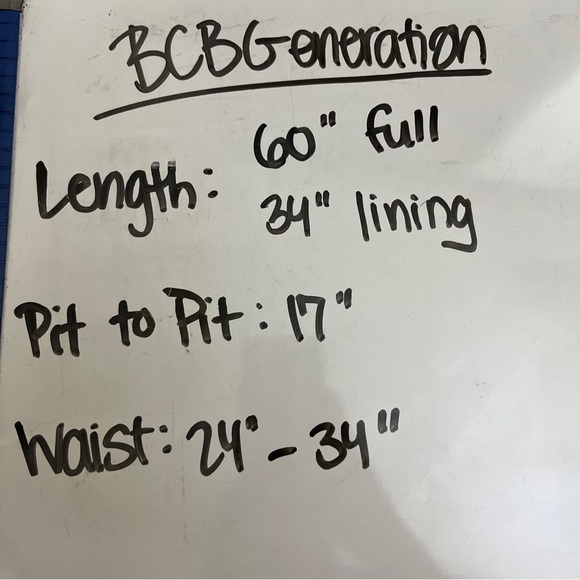 BCBGeneration
Length: 60" full
34" lining
Pit to Pit: 17"
Waist: 24" - 34"